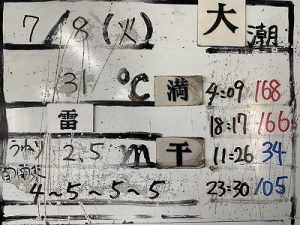 7/8(火) 大潮
31 ℃ 満 4:09 168
雷 18:17 166
うねり 2.5m 干 11:26 34
4~5~5~5 23:30 105